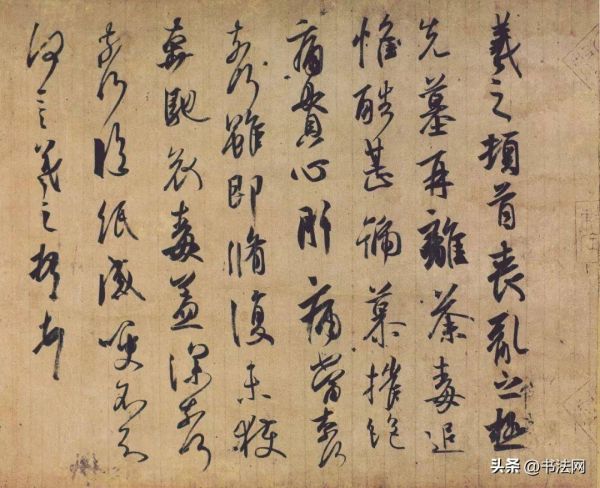 羲之頓首喪亂之極
先墓再離荼毒追
惟酷甚號慕摧絕
痛貫心肝痛當奈何
奈何雖即脩復未獲
奔馳哀毒益深奈何
奈何臨紙感哽不知
何言羲之頓首
头条 @书法网